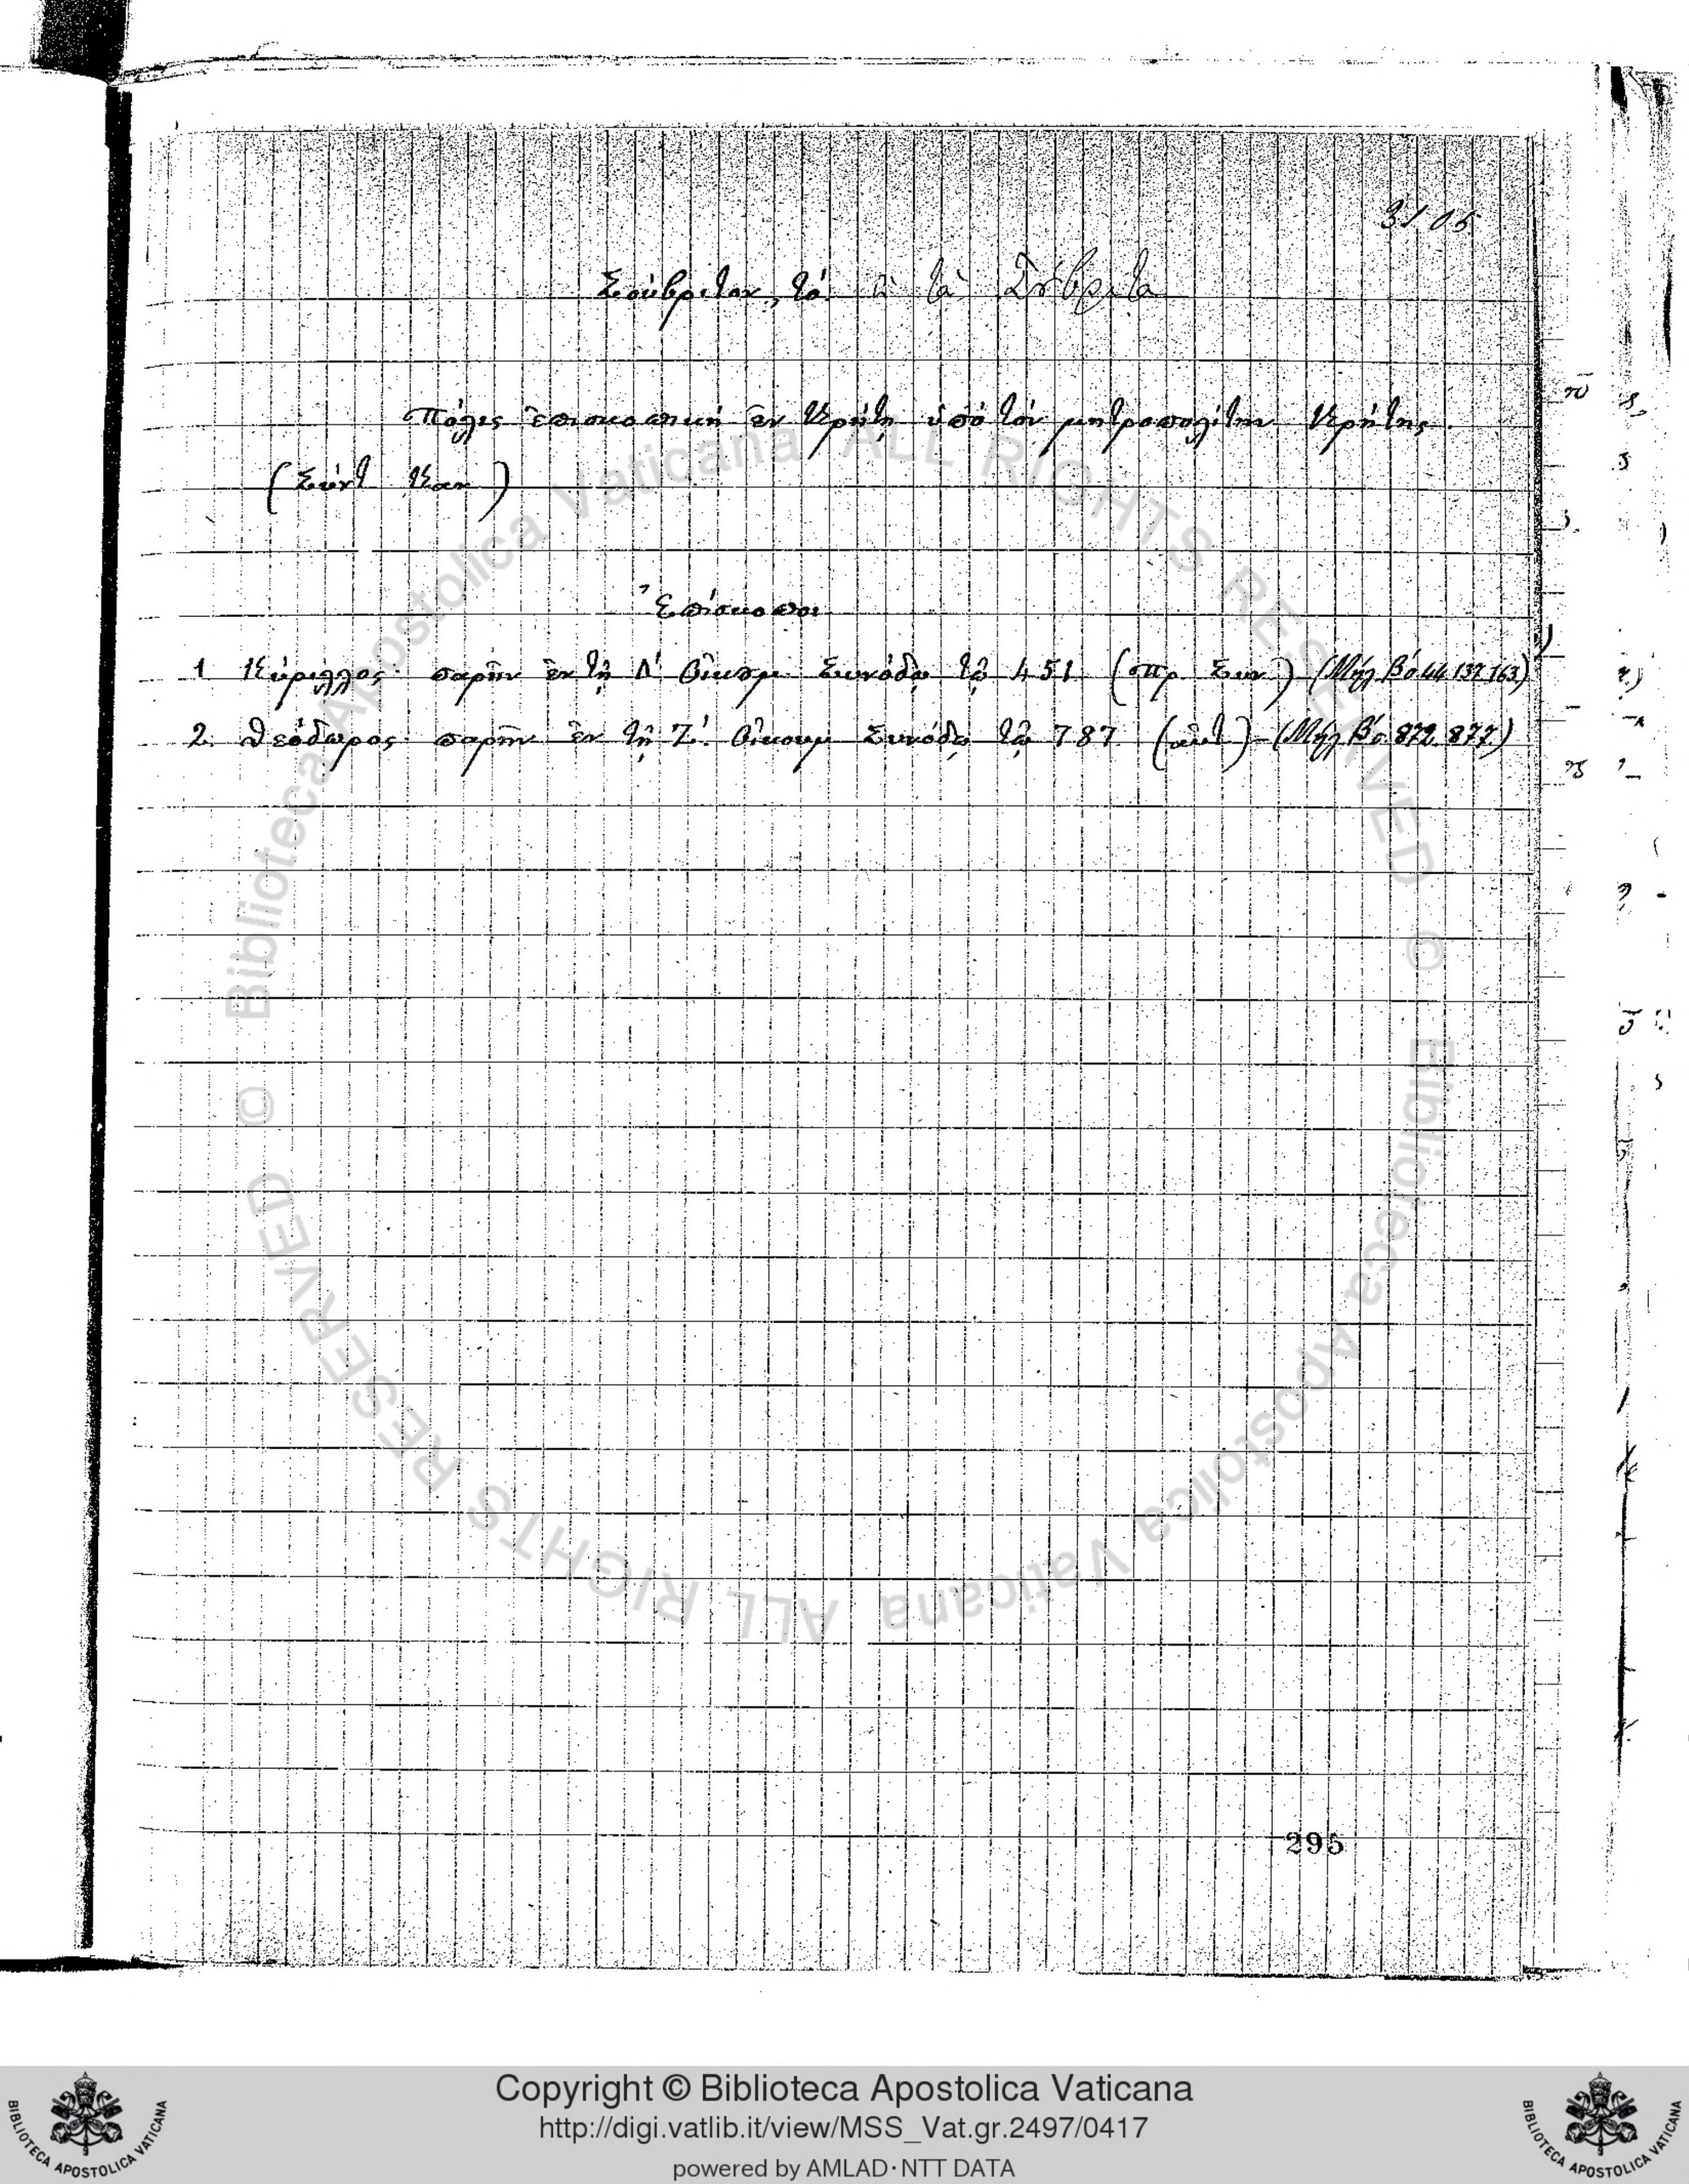 3105
Σούβριτον, τό ἢ τὰ Σύβριτα
Πόλις ἐπισκοπικὴ ἐν Κρήτῃ ὑπὸ τὸν μητροπολίτην Κρήτης.
(Σύντ Καν)
Ἐπίσκοποι
1 Κύριλλος παρῆν ἐν τῇ Δ' Οἰκουμ Συνόδῳ τῷ 451 (πρ Συν) (Μήλ Βό 44 137 163)
2. Θεόδωρος παρῆν ἐν τῇ Ζ'. Οἰκουμ Συνόδῳ τῷ 787 (αὐτ) (Μήλ Βό 872 877)
295
Copyright © Biblioteca Apostolica Vaticana
http://digi.vatlib.it/view/MSS_Vat.gr.2497/0417
powered by AMLAD·NTT DATA
BIBLIOTECA APOSTOLICA VATICANA
BIBLIOTECA APOSTOLICA VATICANA
© Biblioteca Apostolica Vaticana ALL RIGHTS RESERVED © Biblioteca Apostolica Vaticana ALL RIGHTS RESERVED